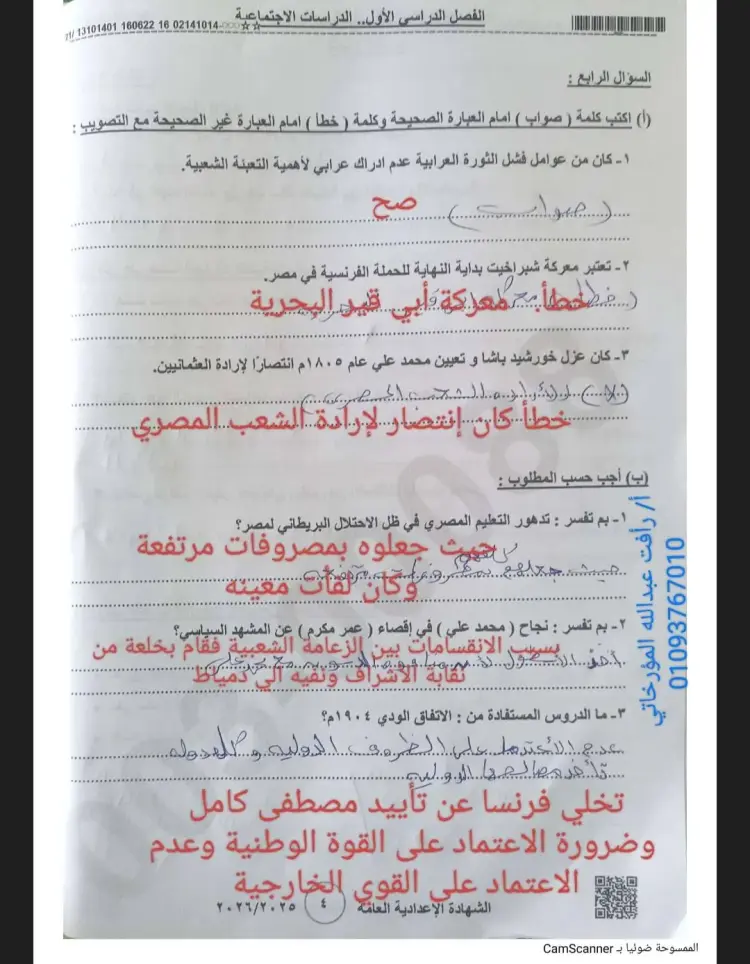 الفصل الدراسي الأول.. الدراسات الاجتماعية
13101401 160622 16 02141014
السؤال الرابع :
(أ) اكتب كلمة ( صواب ) امام العبارة الصحيحة وكلمة ( خطأ ) امام العبارة غير الصحيحة مع التصويب :
١- كان من عوامل فشل الثورة العرابية عدم ادراك عرابي لأهمية التعبئة الشعبية.
(صواب) صح
٢- تعتبر معركة شبراخيت بداية النهاية للحملة الفرنسية في مصر.
خطأ. معركة أبي قير البحرية
٣- كان عزل خورشيد باشا و تعيين محمد علي عام ١٨٠٥م انتصارًا لإرادة العثمانيين.
الشعب المصري
خطأ كان إنتصار لإرادة الشعب المصري
(ب) أجب حسب المطلوب :
١- بم تفسر : تدهور التعليم المصري في ظل الاحتلال البريطاني لمصر؟
حيث جعلوه بمصروفات مرتفعة
وكان لفئات معينه
٢- بم تفسر : نجاح ( محمد علي ) في إقصاء ( عمر مكرم ) عن المشهد السياسي؟
بسبب الانقسامات بين الزعامة الشعبية فقام بخلعة من
نقابة الأشراف ونفيه الي دمياط
٣- ما الدروس المستفادة من : الاتفاق الودي ١٩٠٤م؟
عدم الاعتماد على الظروف الدولية
تخلي فرنسا عن تأييد مصطفى كامل
وضرورة الاعتماد على القوة الوطنية وعدم
الاعتماد علي القوي الخارجية
الشهادة الإعدادية العامة ٤ ٢٠٢٦/٢٠٢٥
أ/ رأفت عبدالله المؤرخاتي
01093767010
الممسوحة ضوئيا بـ CamScanner